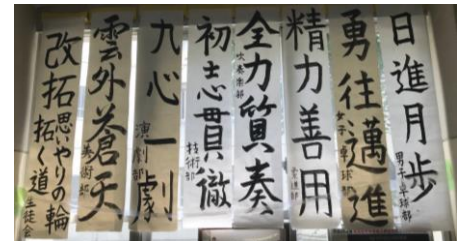 日進月歩
男子卓球部
勇往邁進
女子卓球部
精力善用
柔道部
全力質奏
吹奏楽部
初志貫徹
技術部
九心一劇
演劇部
雲外蒼天
美術部
改拓
思いやりの輪
拓く道
生徒会